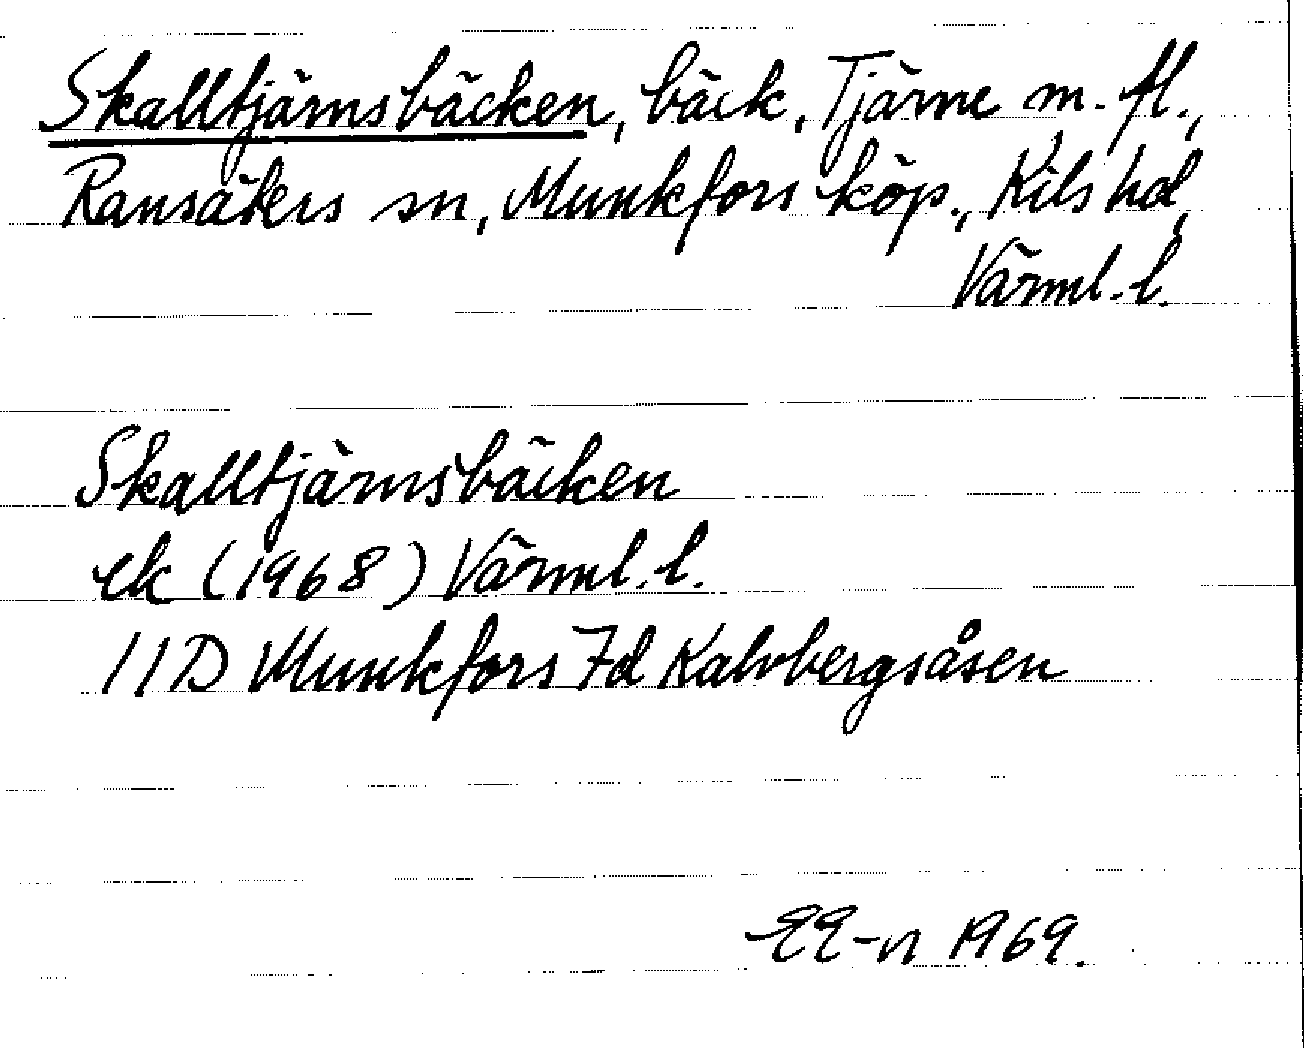 Skalltjärnsbäcken, bäck, Tjärne m. fl.,
Ransäters sn, Munkfors köp., Kils hd,
Värml. l.
Skalltjärnsbäcken
ek (1968) Värml. l.
11D Munkfors 7d Kalvbergsåsen
EE-n 1969.